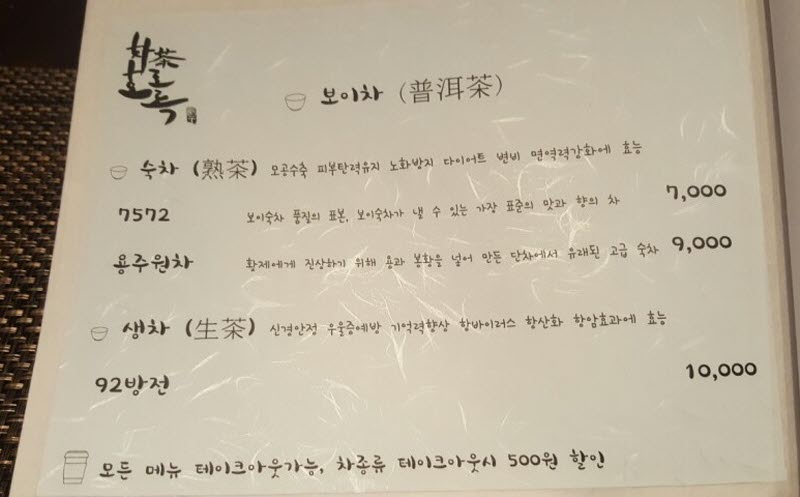 차茶
호로록
보이차 (普洱茶)
숙차 (熟茶) 모공수축 피부탄력유지 노화방지 다이어트 변비 면역력강화에 효능
7572 보이숙차 품질의 표본, 보이숙차가 낼 수 있는 가장 표준의 맛과 향의 차 7,000
용주원차 황제에게 진상하기 위해 용과 봉황을 넣어 만든 단차에서 유래된 고급 숙차 9,000
생차 (生茶) 신경안정 우울증예방 기억력향상 항바이러스 항산화 항암효과에 효능
92방전 10,000
모든 메뉴 테이크아웃가능, 차종류 테이크아웃시 500원 할인